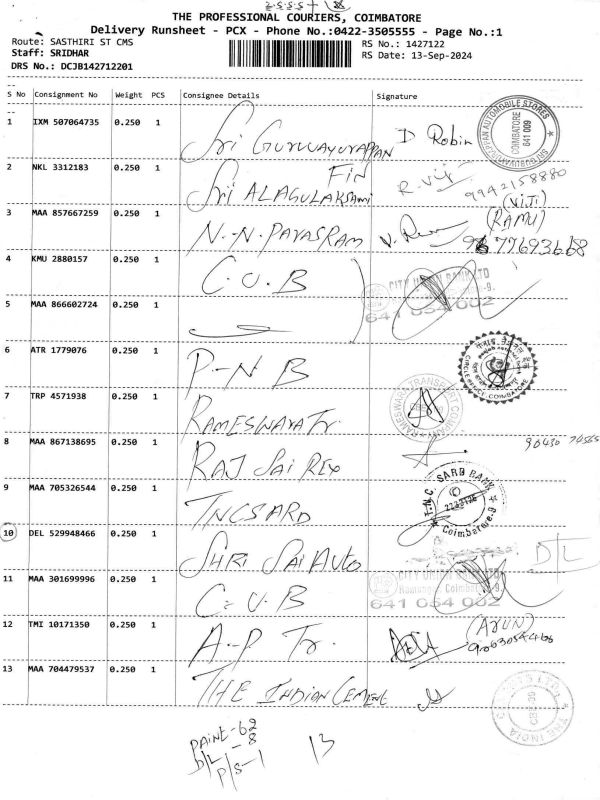 THE PROFESSIONAL COURIERS, COIMBATORE
Delivery Runsheet - PCX - Phone No.:0422-3505555 - Page No.:1
Route: SASTHIRI ST CMS
Staff: SRIDHAR
DRS No.: DCJB142712201
RS No.: 1427122
RS Date: 13-Sep-2024
S No Consignment No Weight PCS Consignee Details Signature
1 IXM 507064735 0.250 1 Sri GURUVAYURAPPAN D Robin
COIMBATORE 641 009
2 NKL 3312183 0.250 1 Sri ALAGULAKSHMI FIN R. Viji 9942158880
(VIJI)
3 MAA 857667259 0.250 1 N.N. PAYASRAM (RAMU)
4 KMU 2880157 0.250 1 C.U.B
CITY UNION BANK LTD
641 054 002
5 MAA 866602724 0.250 1
6 ATR 1779076 0.250 1 P-N B
CIRCLE OFFICE COIMBATORE
7 TRP 4571938 0.250 1 RAMESWARA Tr.
RAMESWARA TRANSPORT COMPANY
8 MAA 867138695 0.250 1 RAJ SAI REX
9 MAA 705326544 0.250 1 TNCSARD
T.N.C. SARD BANK
Coimbatore-9
10 DEL 529948466 0.250 1 SHRI SAI AUTO D/L
11 MAA 301699996 0.250 1 C.U.B
CITY UNION BANK LTD
641 054 002
12 TMI 10171350 0.250 1 A.P Tr. (ARUN)
13 MAA 704479537 0.250 1 THE INDIAN CEMENT
THE INDIA
D/L - 8
P/S - 1
13